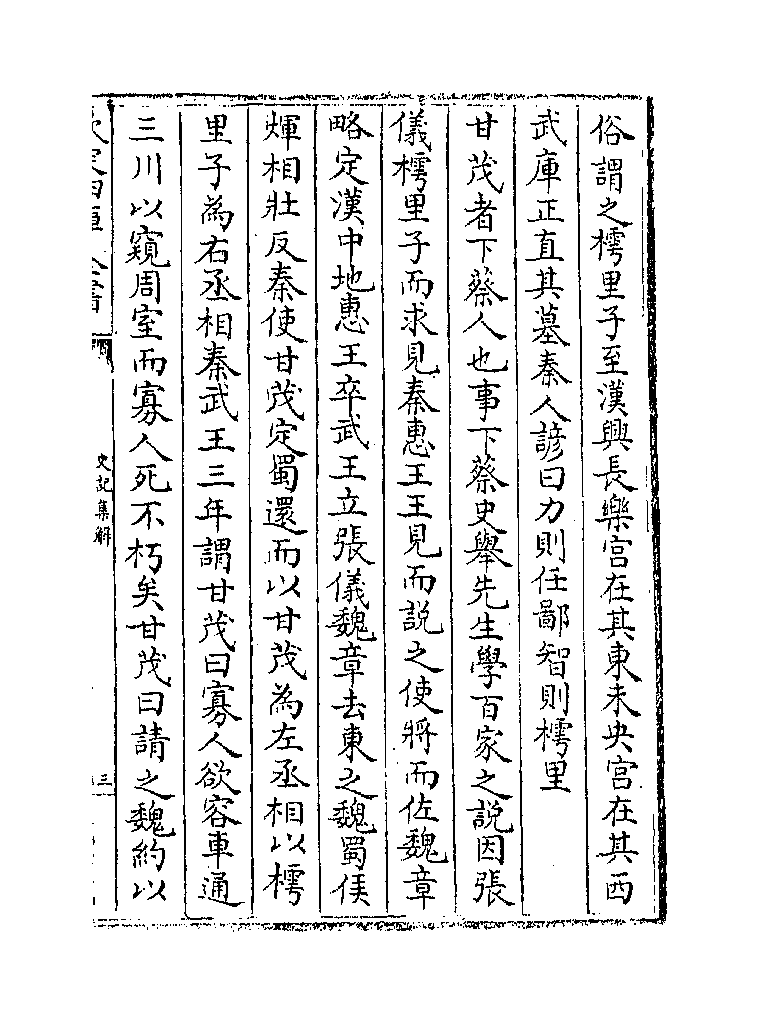 俗謂之樗里子至漢興長樂宫在其東未央宫在其西
武庫正直其墓秦人諺曰力則任鄙智則樗里
甘茂者下蔡人也事下蔡史舉先生學百家之說因張
儀樗里子而求見秦惠王王見而說之使將而佐魏章
略定漢中地惠王卒武王立張儀魏章去東之魏蜀侯
煇相壯反秦使甘茂定蜀還而以甘茂為左丞相以樗
里子為右丞相秦武王三年謂甘茂曰寡人欲容車通
三川以窺周室而寡人死不朽矣甘茂曰請之魏約以
史記集解
三